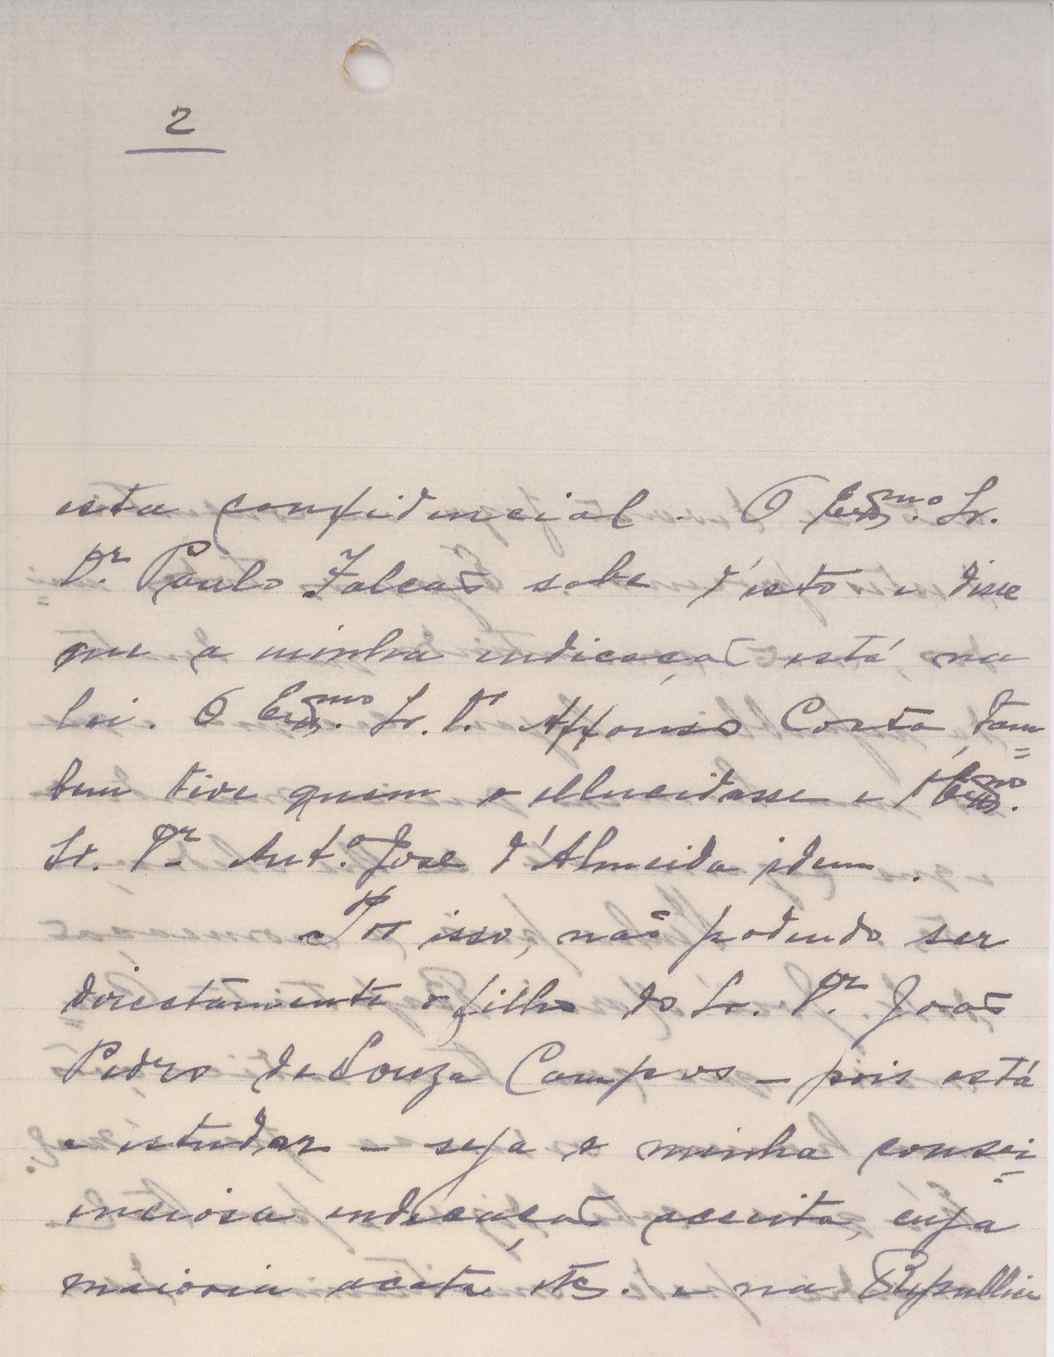 2
esta confidencial. O Exmo. Sr.
Dr. Paulo Falcaõ sabe d'isto e disse
que a minha indicaçaõ está na
lei. O Exmo. Sr. Dr. Affonso Costa, tam=
bem tive quem o ellucidasse e o Exmo.
Sr. Dr. Ant.º José d'Almeida idem.
Por isso, naõ podendo ser
directamente o filho do Sr. Dr. Joaõ
Pedro de Souza Campos - pois está
a estudar - seja a minha consci=
enciosa indicaçaõ acceita, cuja
maioria acata etc. e na Republica